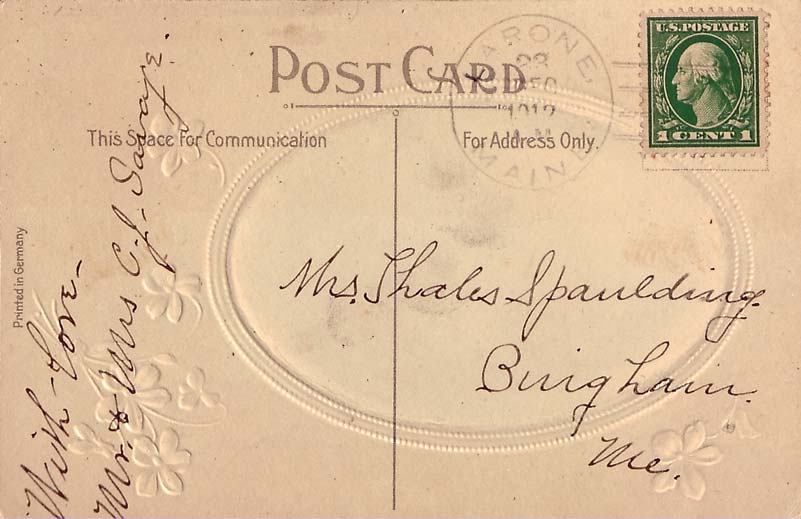 POST CARD
This Space For Communication
For Address Only.
U.S. POSTAGE
1 CENT 1
MAINE
1912
Printed in Germany
With Love-
Mr. & Mrs C. J. Savage.
Mrs. Thales Spaulding.
Bingham.
Me.